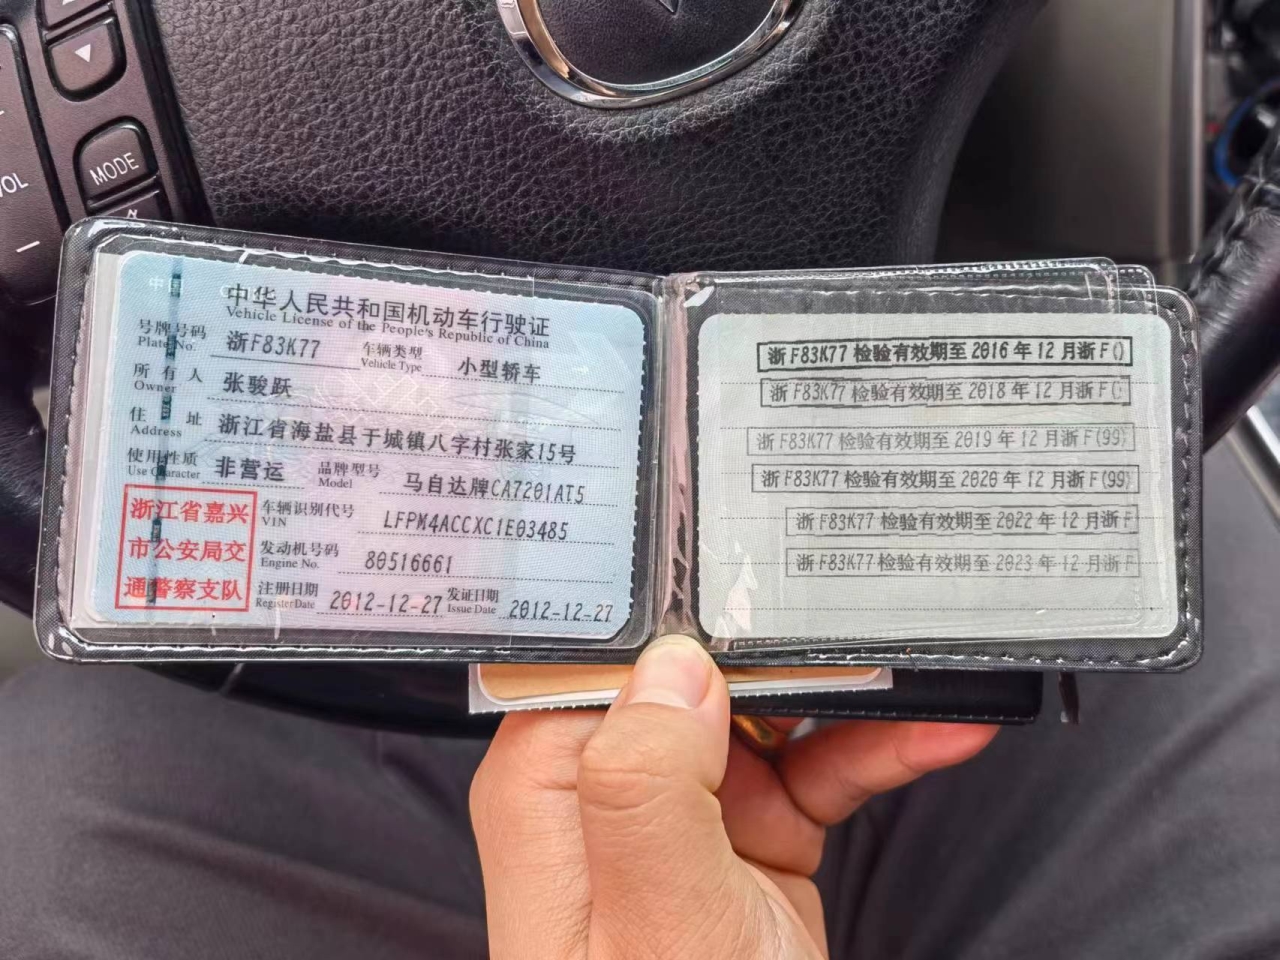 MODE
VOL
中国
中华人民共和国机动车行驶证
Vehicle License of the People's Republic of China
号牌号码 浙F83K77 车辆类型 小型轿车
Plate No. Vehicle Type
所有人 张骏跃
Owner
住址 浙江省海盐县于城镇八字村张家15号
Address
使用性质 非营运 品牌型号 马自达牌CA7201AT5
Use Character Model
浙江省嘉兴
市公安局交
通警察支队
车辆识别代号 LFPM4ACCXC1E03485
VIN
发动机号码 80516661
Engine No.
注册日期 2012-12-27 发证日期 2012-12-27
Register Date Issue Date
浙F83K77 检验有效期至 2016 年 12 月浙F()
浙F83K77 检验有效期至 2018 年 12 月浙F(
浙F83K77 检验有效期至 2019 年 12 月浙F(99)
浙F83K77 检验有效期至 2020 年 12 月浙F(99)
浙F83K77 检验有效期至 2022 年 12 月浙F
浙F83K77 检验有效期至 2023 年 12 月浙F